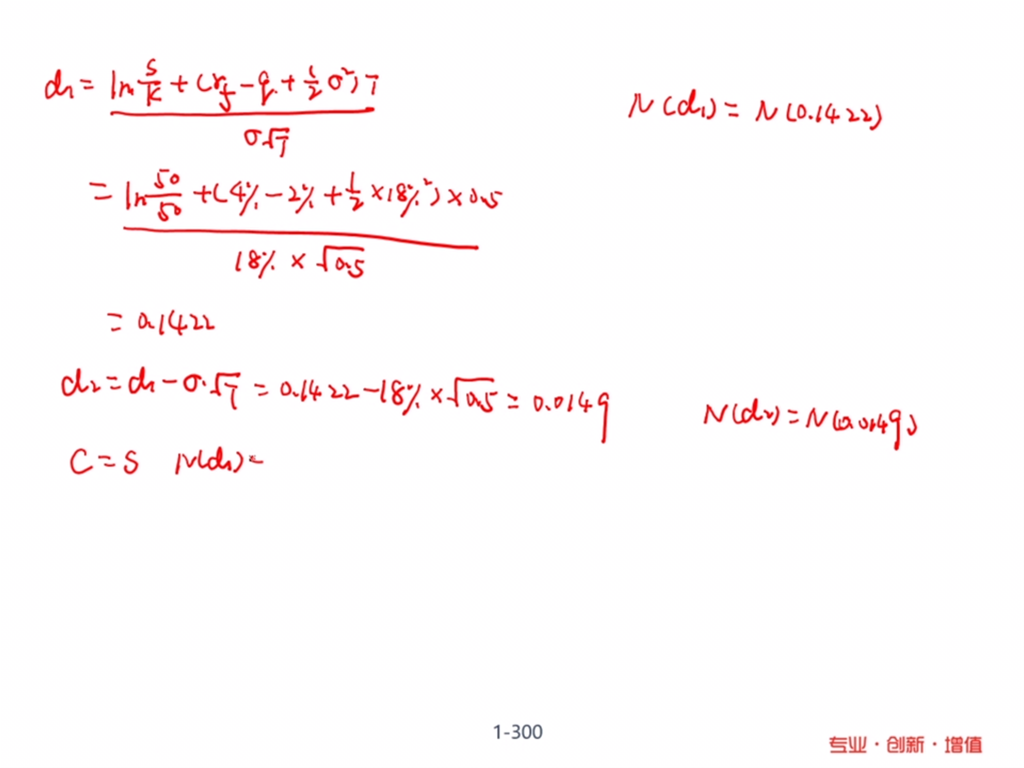 d₁ = (ln S/K + (rf - q + 1/2 σ²)T) / (σ√T)
N(d₁) = N(0.1422)
= (ln 50/50 + (4% - 2% + 1/2 × 18%²) × 0.5) / (18% × √0.5)
= 0.1422
d₂ = d₁ - σ·√T = 0.1422 - 18% × √0.5 = 0.0149
N(d₂) = N(0.0149)
C = S N(d₁) -
1-300
专业·创新·增值